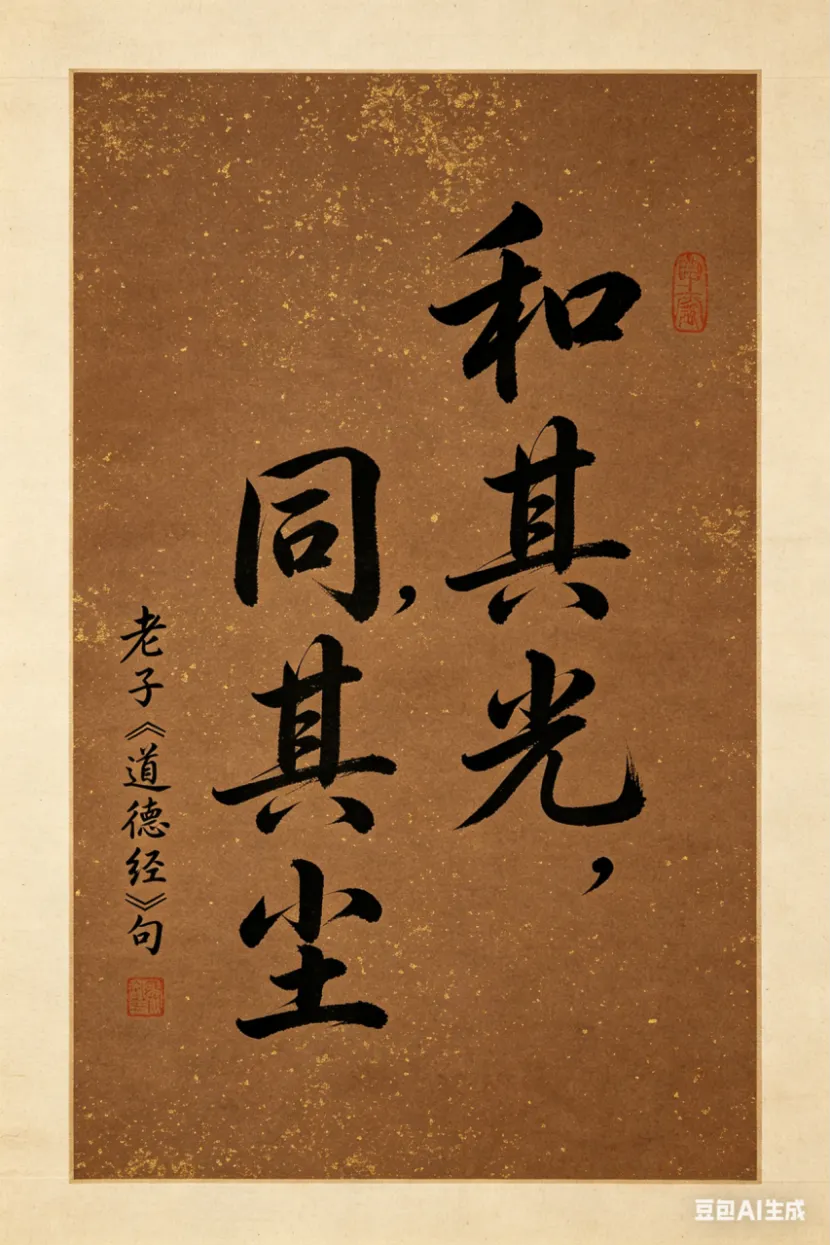 和其光，
同，其尘
老子《道德经》句
豆包AI生成